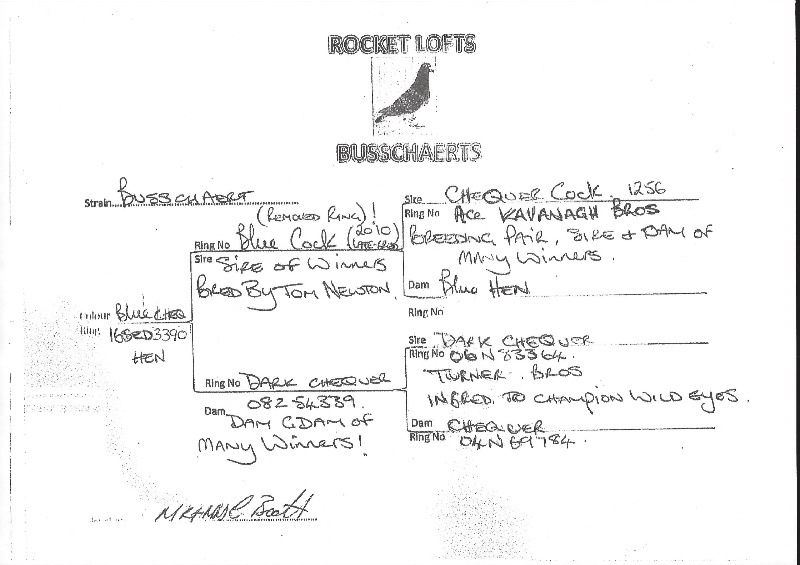 ROCKET LOFTS
BUSSCHAERTS
Strain BUSSCHAERT
(REMOVED RING)!
Ring No Blue Cock (2010 LATE-BRED)
Sire SIRE OF WINNERS
BRED BY TOM NEWTON.
Colour Blue CHEQ
Ring 16SED3390
HEN
Ring No DARK CHEQUER
082 54339.
Dam DAM GDAM OF
MANY WINNERS!
Sire CHEQUER COCK. 1256
Ring No ACE KAVANAGH BROS
BREEDING PAIR, SIRE & DAM OF
MANY WINNERS.
Dam Blue HEN
Ring No
Sire DARK CHEQUER
Ring No 06N83364.
TURNER BROS
INBRED TO CHAMPION WILD EYES.
Dam CHEQUER
Ring No 04N69784.